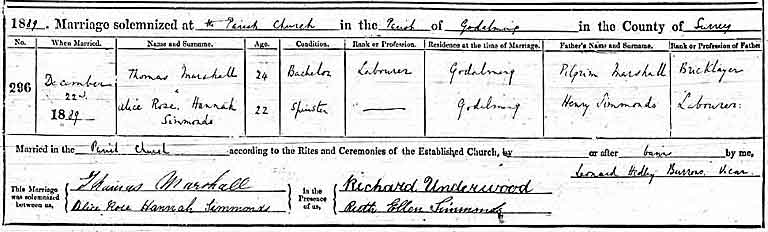 1889. Marriage solemnized at the Parish Church in the Parish of Godalming in the County of Surrey
No. When Married. Name and Surname. Age. Condition. Rank or Profession. Residence at the time of Marriage. Father's Name and Surname. Rank or Profession of Father
296 December 22d. 1889 Thomas Marshall 24 Bachelor Labourer Godalming Pilgrim Marshall Bricklayer
Alice Rose Hannah Simmonds 22 Spinster — Godalming Henry Simmonds Labourer
Married in the Parish Church according to the Rites and Ceremonies of the Established Church, by or after banns by me,
Leonard Hedley Burrows. Vicar
This Marriage was solemnized between us, Thomas Marshall
Alice Rose Hannah Simmonds
In the Presence of us, Richard Underwood
Ruth Ellen Simmonds